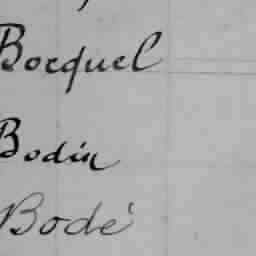 Bocquel
Bodin
Bodé